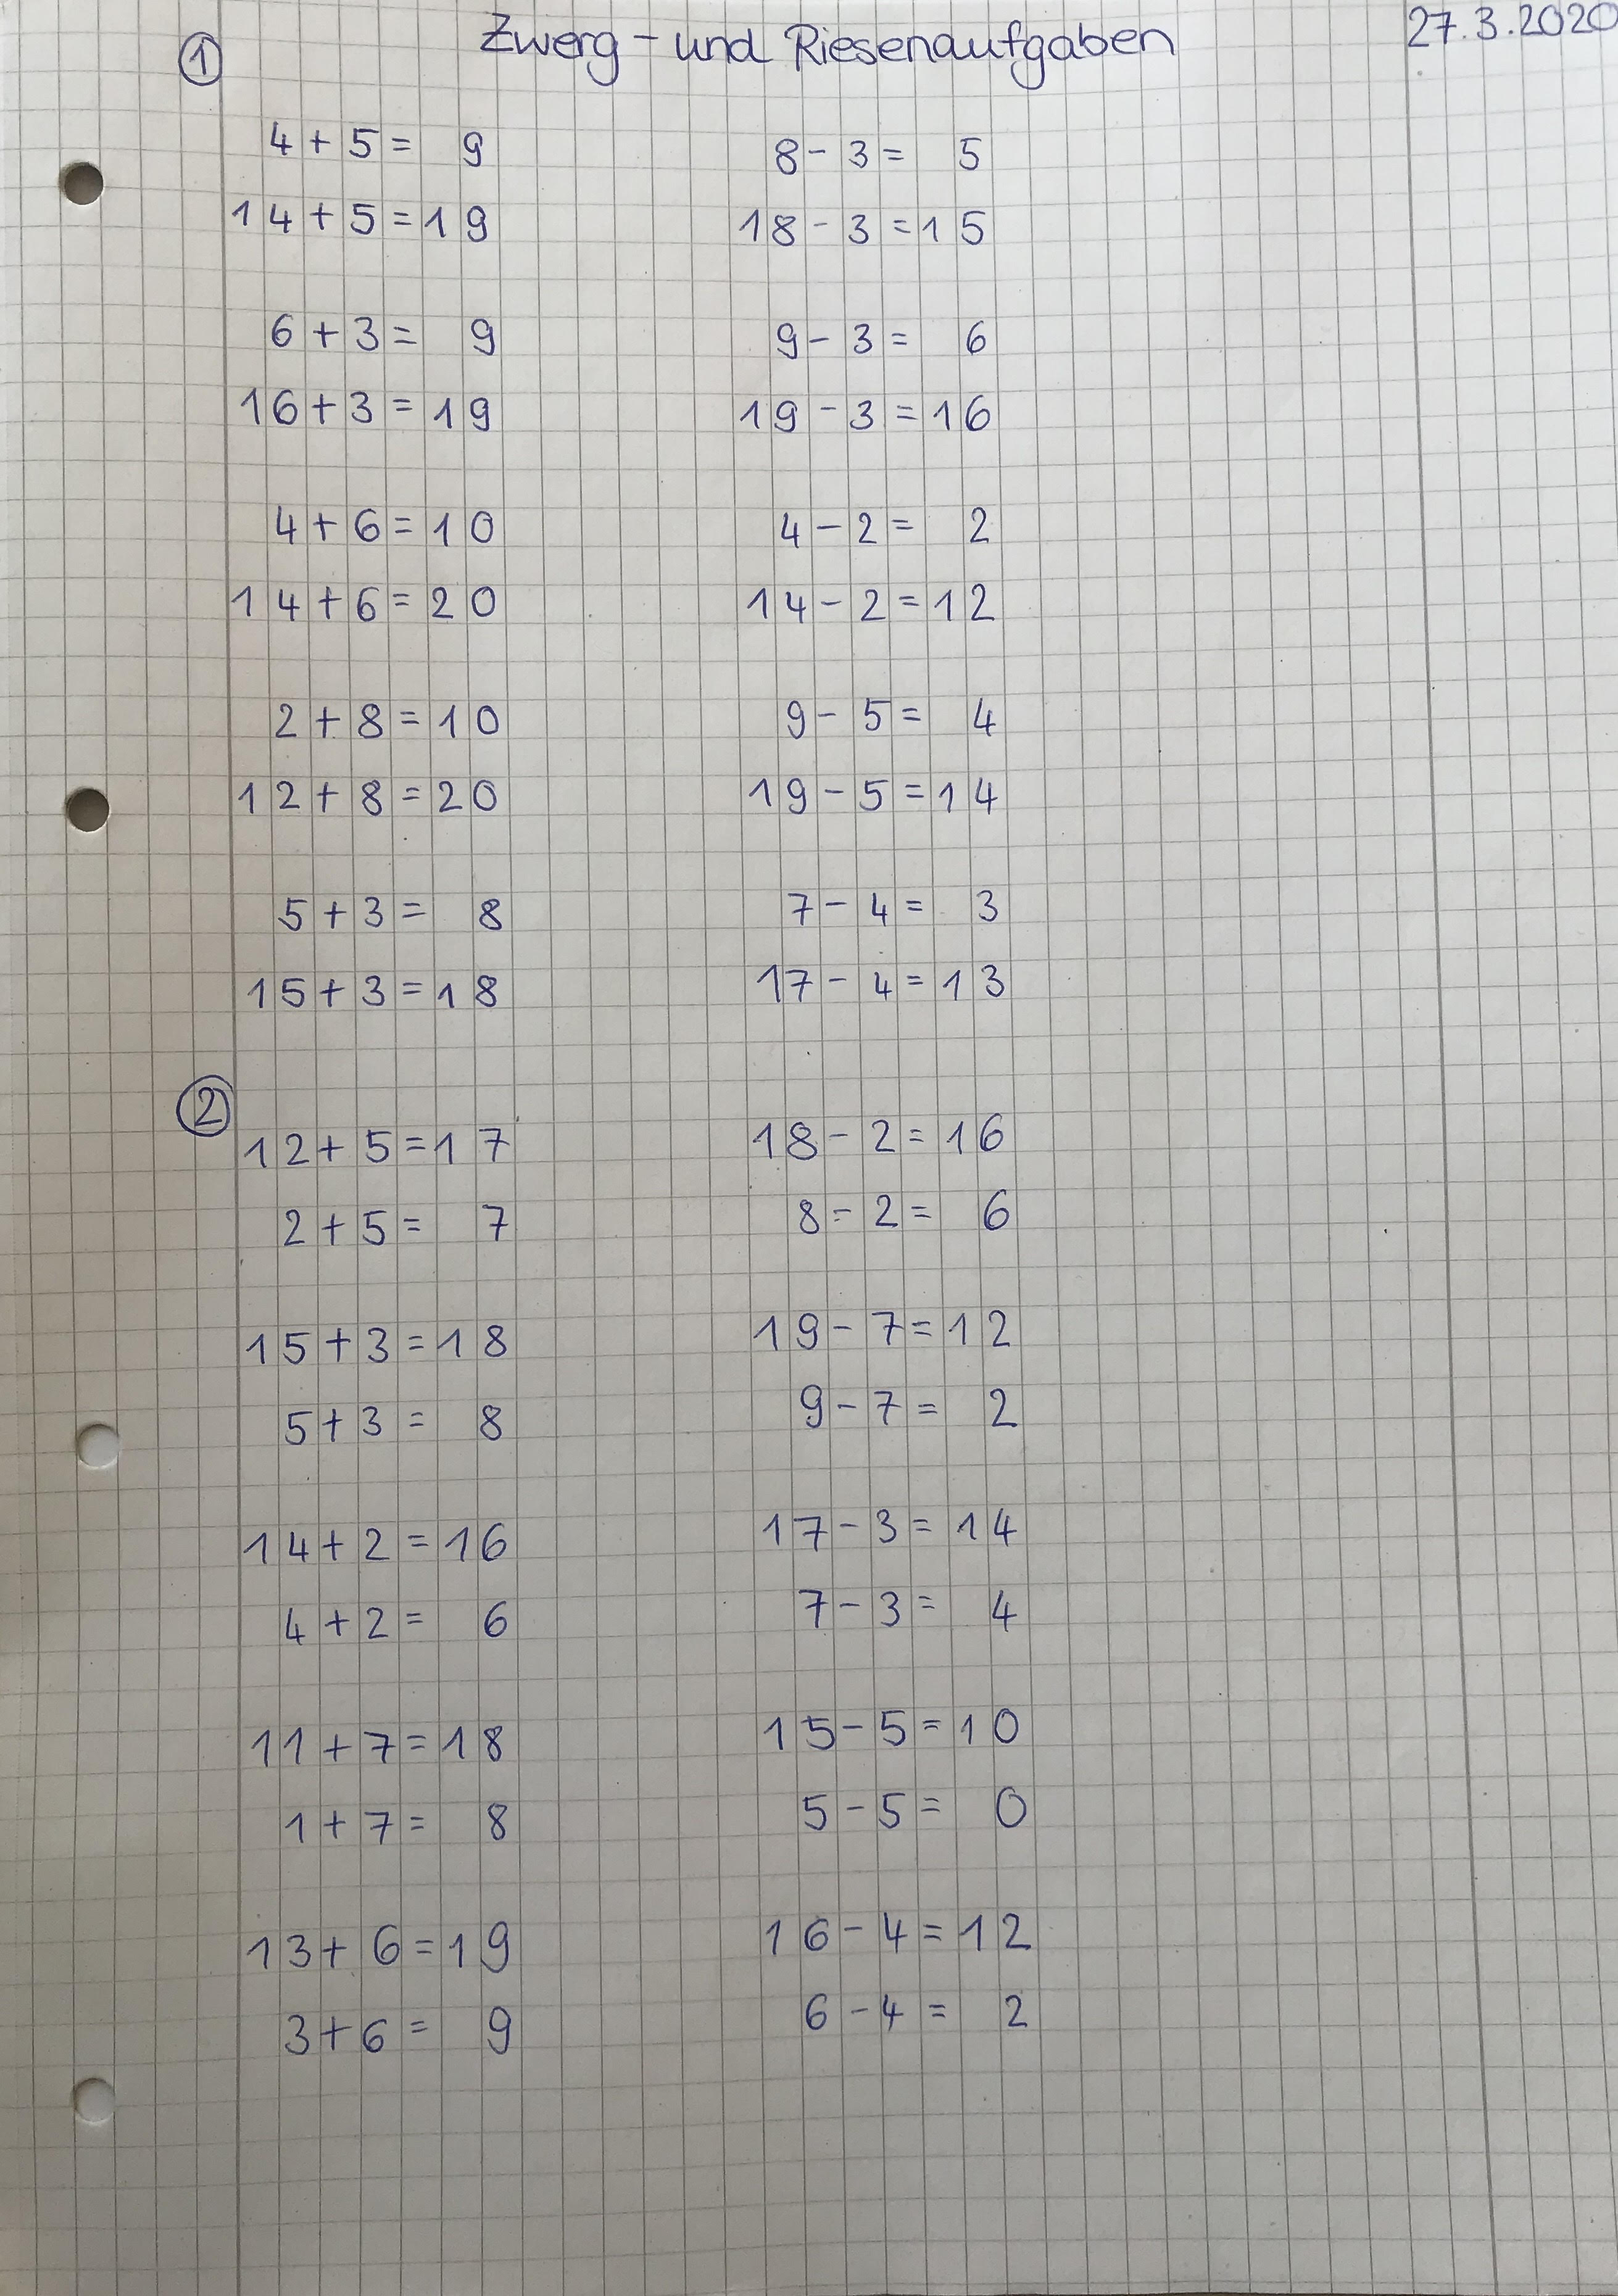 Zwerg- und Riesenaufgaben 27.3.2020
①
4 + 5 = 9 8 - 3 = 5
14 + 5 = 19 18 - 3 = 15
6 + 3 = 9 9 - 3 = 6
16 + 3 = 19 19 - 3 = 16
4 + 6 = 10 4 - 2 = 2
14 + 6 = 20 14 - 2 = 12
2 + 8 = 10 9 - 5 = 4
12 + 8 = 20 19 - 5 = 14
5 + 3 = 8 7 - 4 = 3
15 + 3 = 18 17 - 4 = 13
②
12 + 5 = 17 18 - 2 = 16
2 + 5 = 7 8 - 2 = 6
15 + 3 = 18 19 - 7 = 12
5 + 3 = 8 9 - 7 = 2
14 + 2 = 16 17 - 3 = 14
4 + 2 = 6 7 - 3 = 4
11 + 7 = 18 15 - 5 = 10
1 + 7 = 8 5 - 5 = 0
13 + 6 = 19 16 - 4 = 12
3 + 6 = 9 6 - 4 = 2